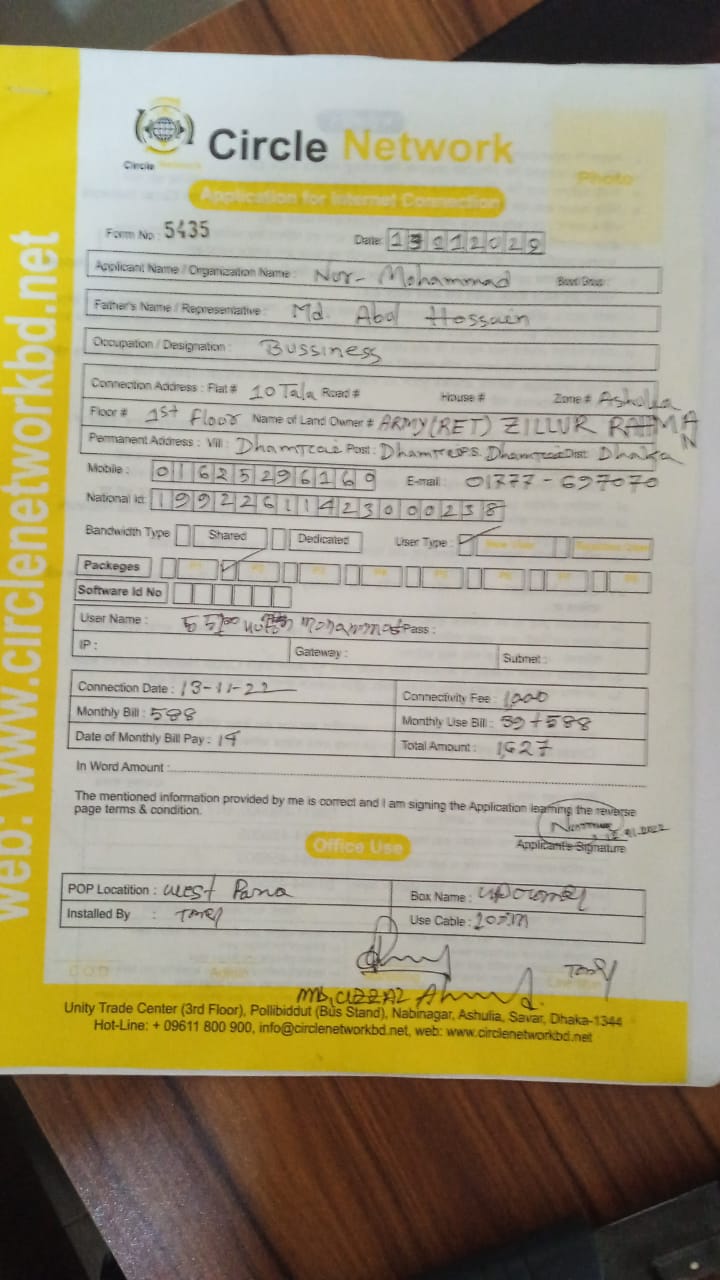 Circle Network
Circle Network
Photo
Application for Internet Connection
Form No : 5435
Date:
Applicant Name / Organization Name : Nur- Mohammad Blood Group :
Father's Name / Representative : Md. Abdl Hossain
Occupation / Designation : Bussiness
Connection Address : Flat # 10 Tala Road # House # Zone # Ashulia
Floor # 1st floor Name of Land Owner # ARMY(RET) ZILLUR RAHMAN
Permanent Address : Vill : Dhamrai Post : P.S. Dhamrai Dist: Dhaka
Mobile : 01625296169 E-mail : 01777-697070
National Id: 19922611423000238
Bandwidth Type Shared Dedicated User Type :
Packeges P1 P2 P3 P4 P5 P6 P7 P8
Software Id No
User Name : Pass :
IP : Gateway : Subnet :
Connection Date : 13-11-22 Connectivity Fee : 1,000
Monthly Bill : 588 Monthly Use Bill : 39+588
Date of Monthly Bill Pay : 14 Total Amount : 1,627
In Word Amount :
The mentioned information provided by me is correct and I am signing the Application learning the reverse
page terms & condition.
Applicant's Signature
Office Use
POP Locatition : west Para Box Name :
Installed By : Use Cable :
C.O.O Admin
Unity Trade Center (3rd Floor), Pollibiddut (Bus Stand), Nabinagar, Ashulia, Savar, Dhaka-1344
Hot-Line: + 09611 800 900, info@circlenetworkbd.net, web: www.circlenetworkbd.net
web: www.circlenetworkbd.net